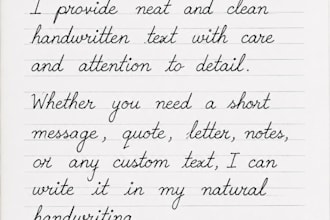 I provide neat and clean
handwritten text with care
and attention to detail.
Whether you need a short
message, quote, letter, notes,
or any custom text, I can
write it in my natural
handwriting